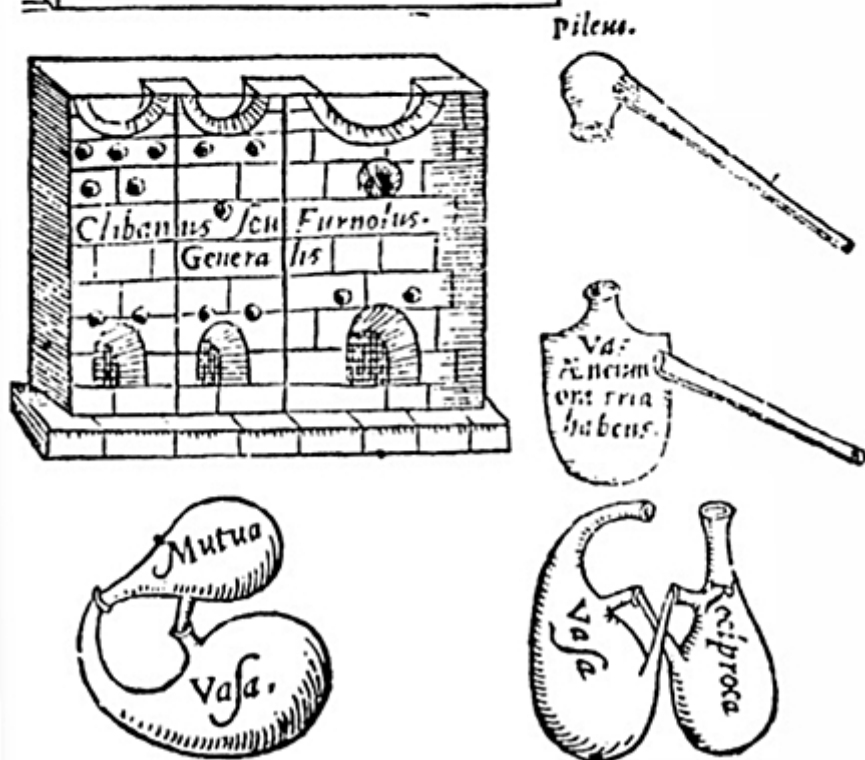 Pileus.
Clibanus seu Furnolus.
Generalis
Vas
Æneum
ora tria
habens.
Mutua
Vasa.
Vasa
Reciproca